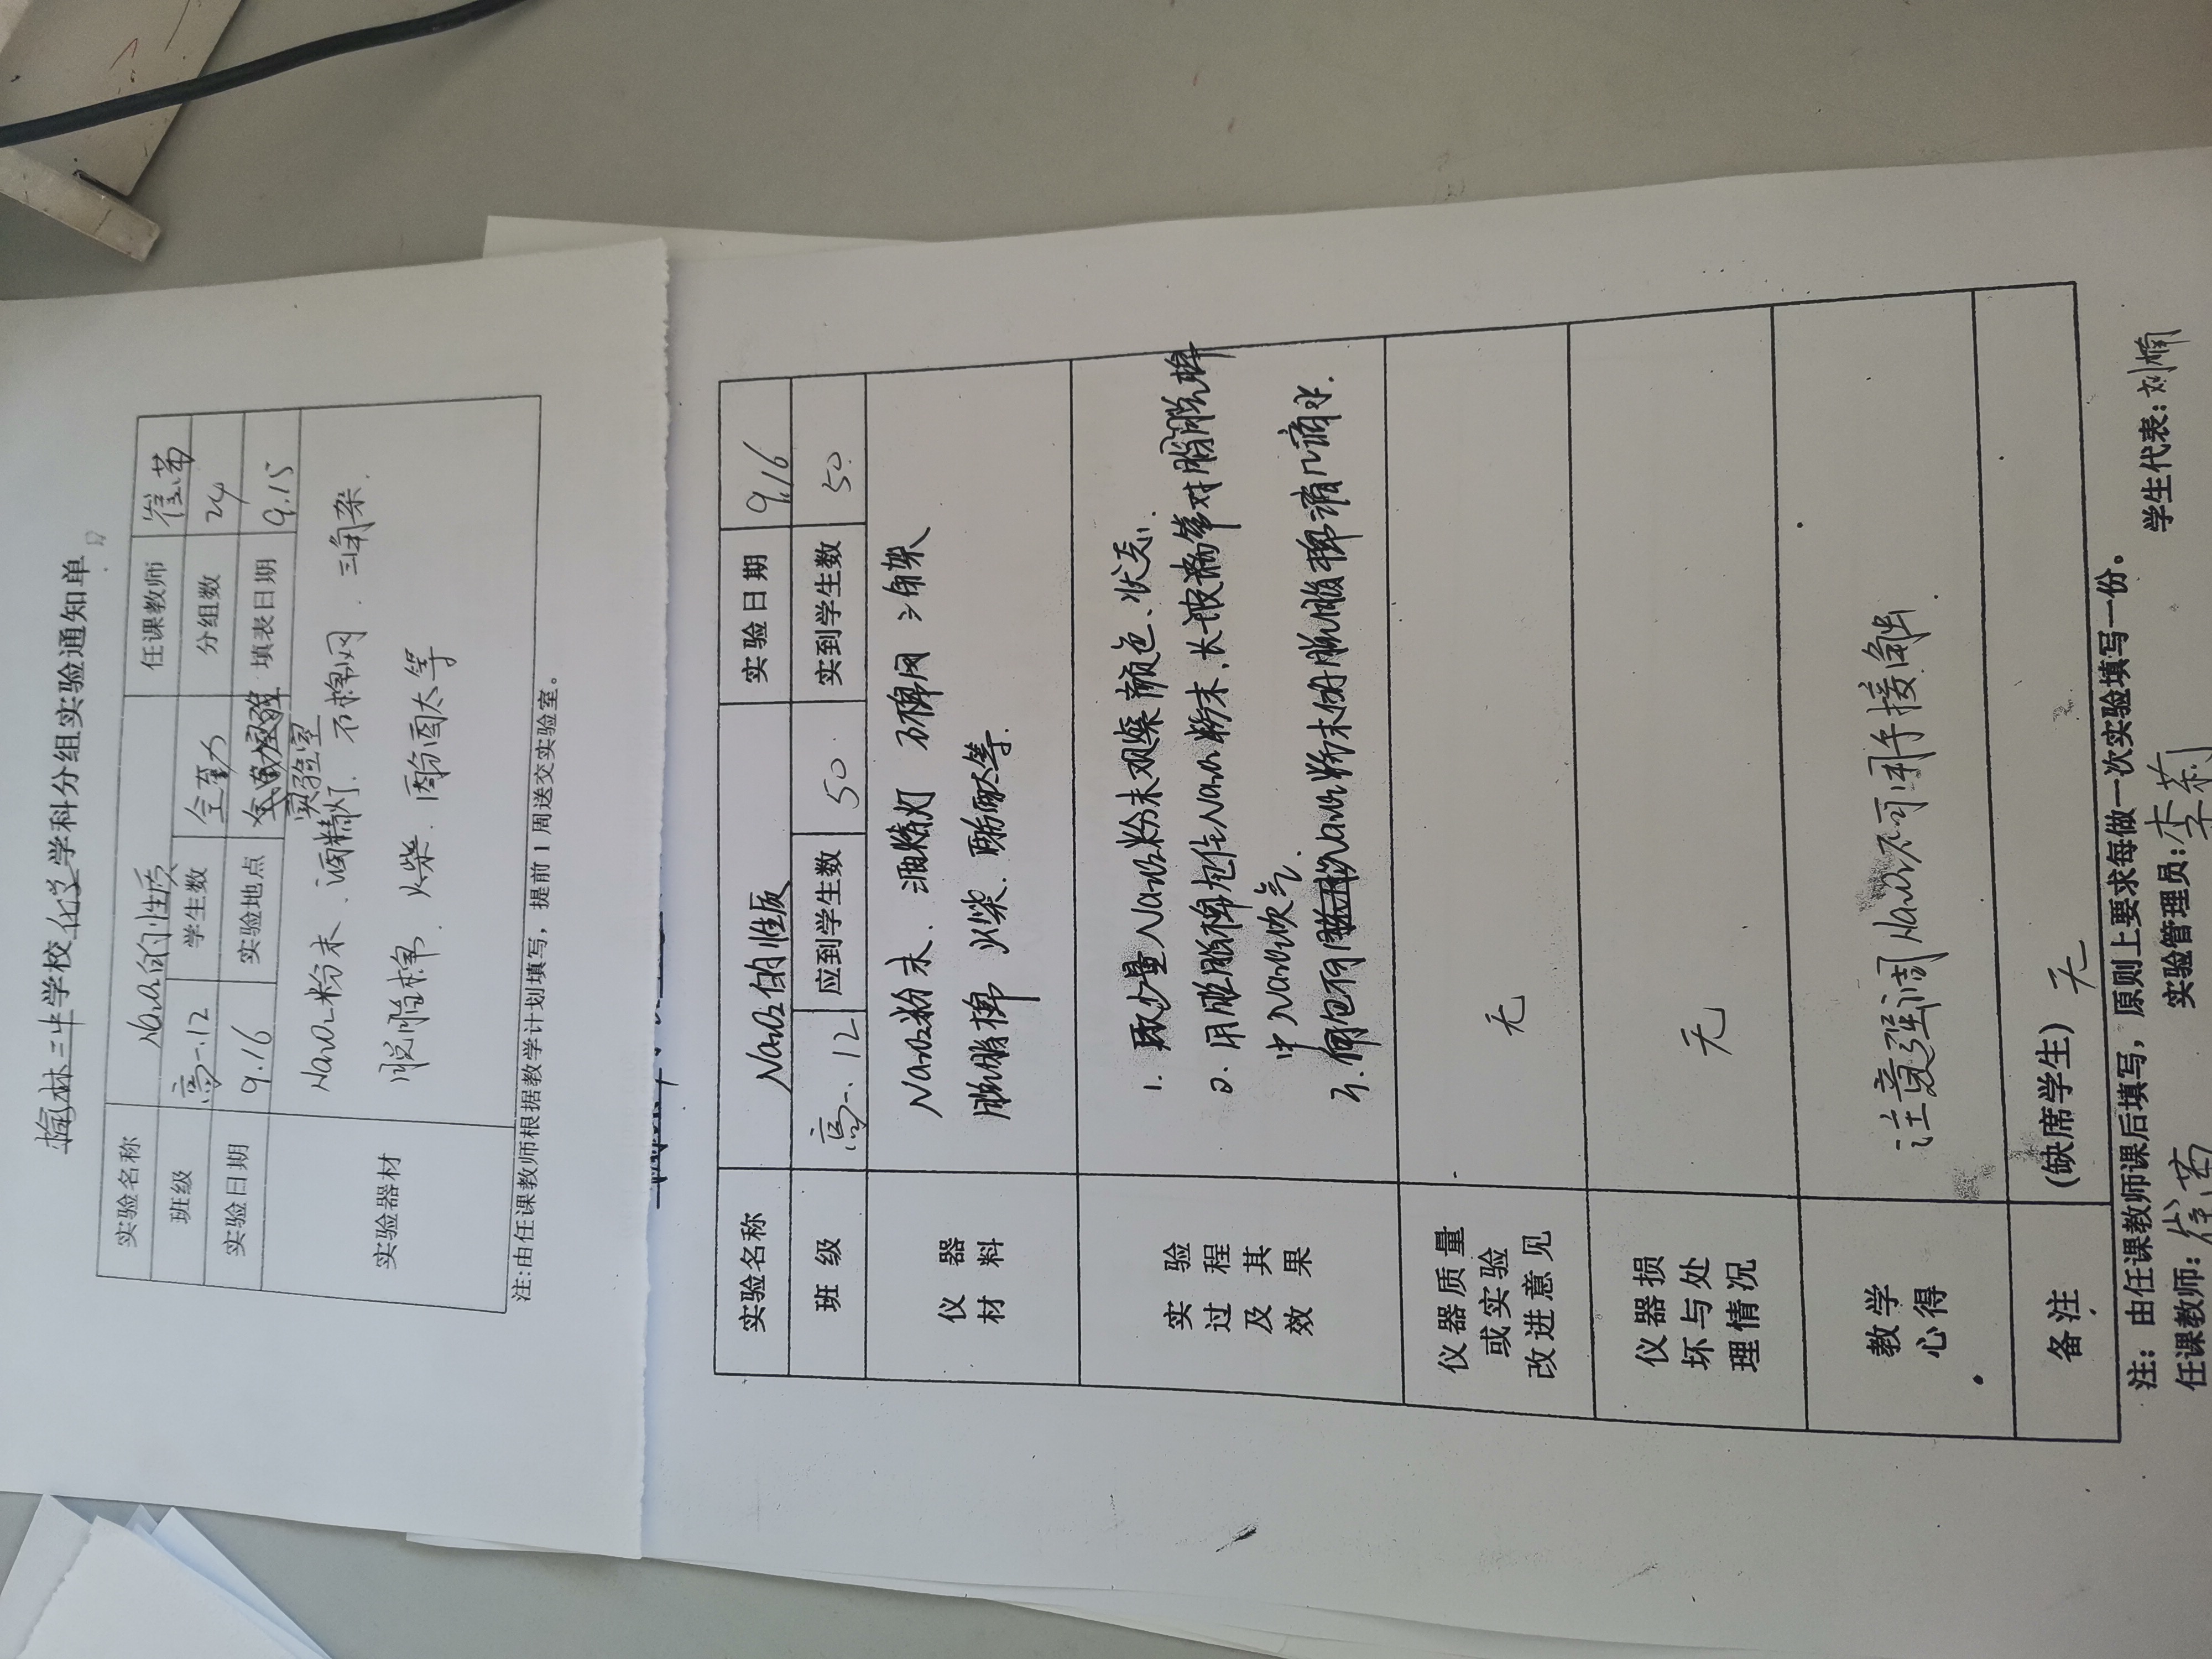 榆林三中学校化学学科分组实验通知单
实验名称 Na2O2的性质 任课教师 崔苗
班级 高一.12 学生数 全部 分组数 24
实验日期 9.16 实验地点 实验室 填表日期 9.15
实验器材 Na2O2粉末、酒精灯、石棉网、三角架.
脱脂棉、火柴、酚酞等
注:由任课教师根据教学计划填写，提前1周送交实验室。
实验名称 Na2O2的性质 实验日期 9.16
班 级 高一.12 应到学生数 50 实到学生数 50
仪 器 材 料 Na2O2粉末、酒精灯 石棉网 三角架
脱脂棉 火柴、酚酞等.
实 验 过 程 及 其 效 果 1. 取少量Na2O2粉末观察颜色、状态.
2. 用脱脂棉包住Na2O2粉末.长玻璃管对脱脂棉
中Na2O2吹气.
3. 向包有Na2O2粉末的脱脂棉滴几滴水.
仪器质量或实验改进意见 无
仪器损坏与处理情况 无
教学心得 注意强调Na2O2不可用手接触.
备注 (缺席学生) 无
注：由任课教师课后填写，原则上要求每做一次实验填写一份。
任课教师: 崔苗 实验管理员: 李莉 学生代表: 刘楠